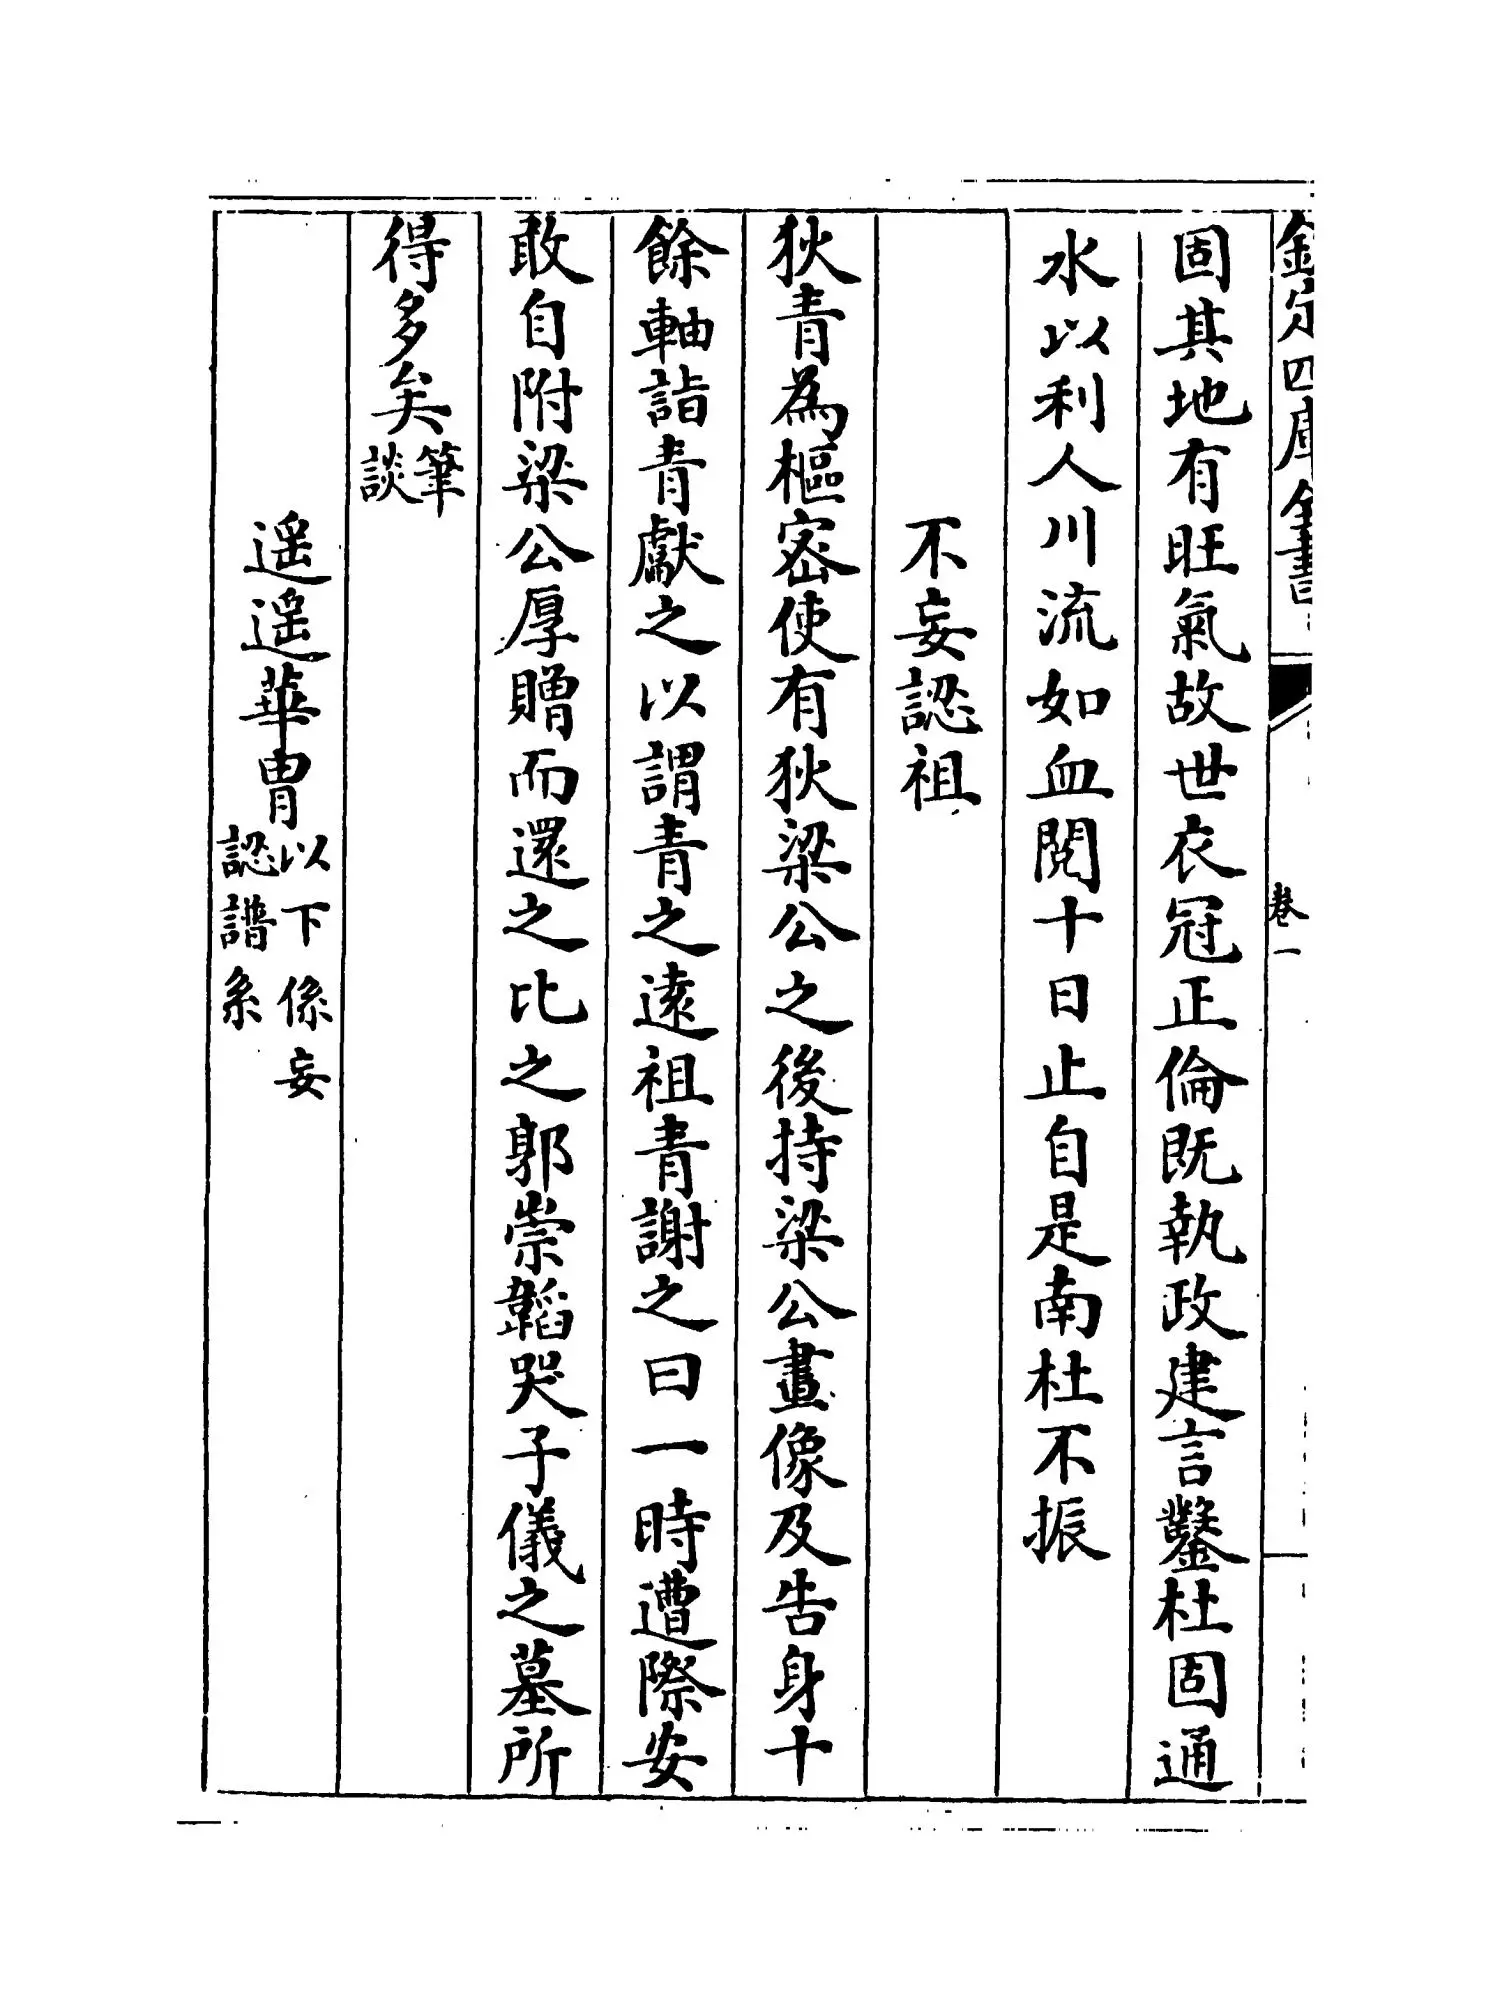 欽定四庫全書
卷一
固其地有旺氣故世衣冠正倫既執政建言鑿杜固通
水以利人川流如血閱十日止自是南杜不振
不妄認祖
狄青為樞密使有狄梁公之後持梁公畫像及告身十
餘軸詣青獻之以謂青之遠祖青謝之曰一時遭際安
敢自附梁公厚贈而還之比之郭崇韜哭子儀之墓所
得多矣筆
談
遥遥華胄以下係妄
認譜系